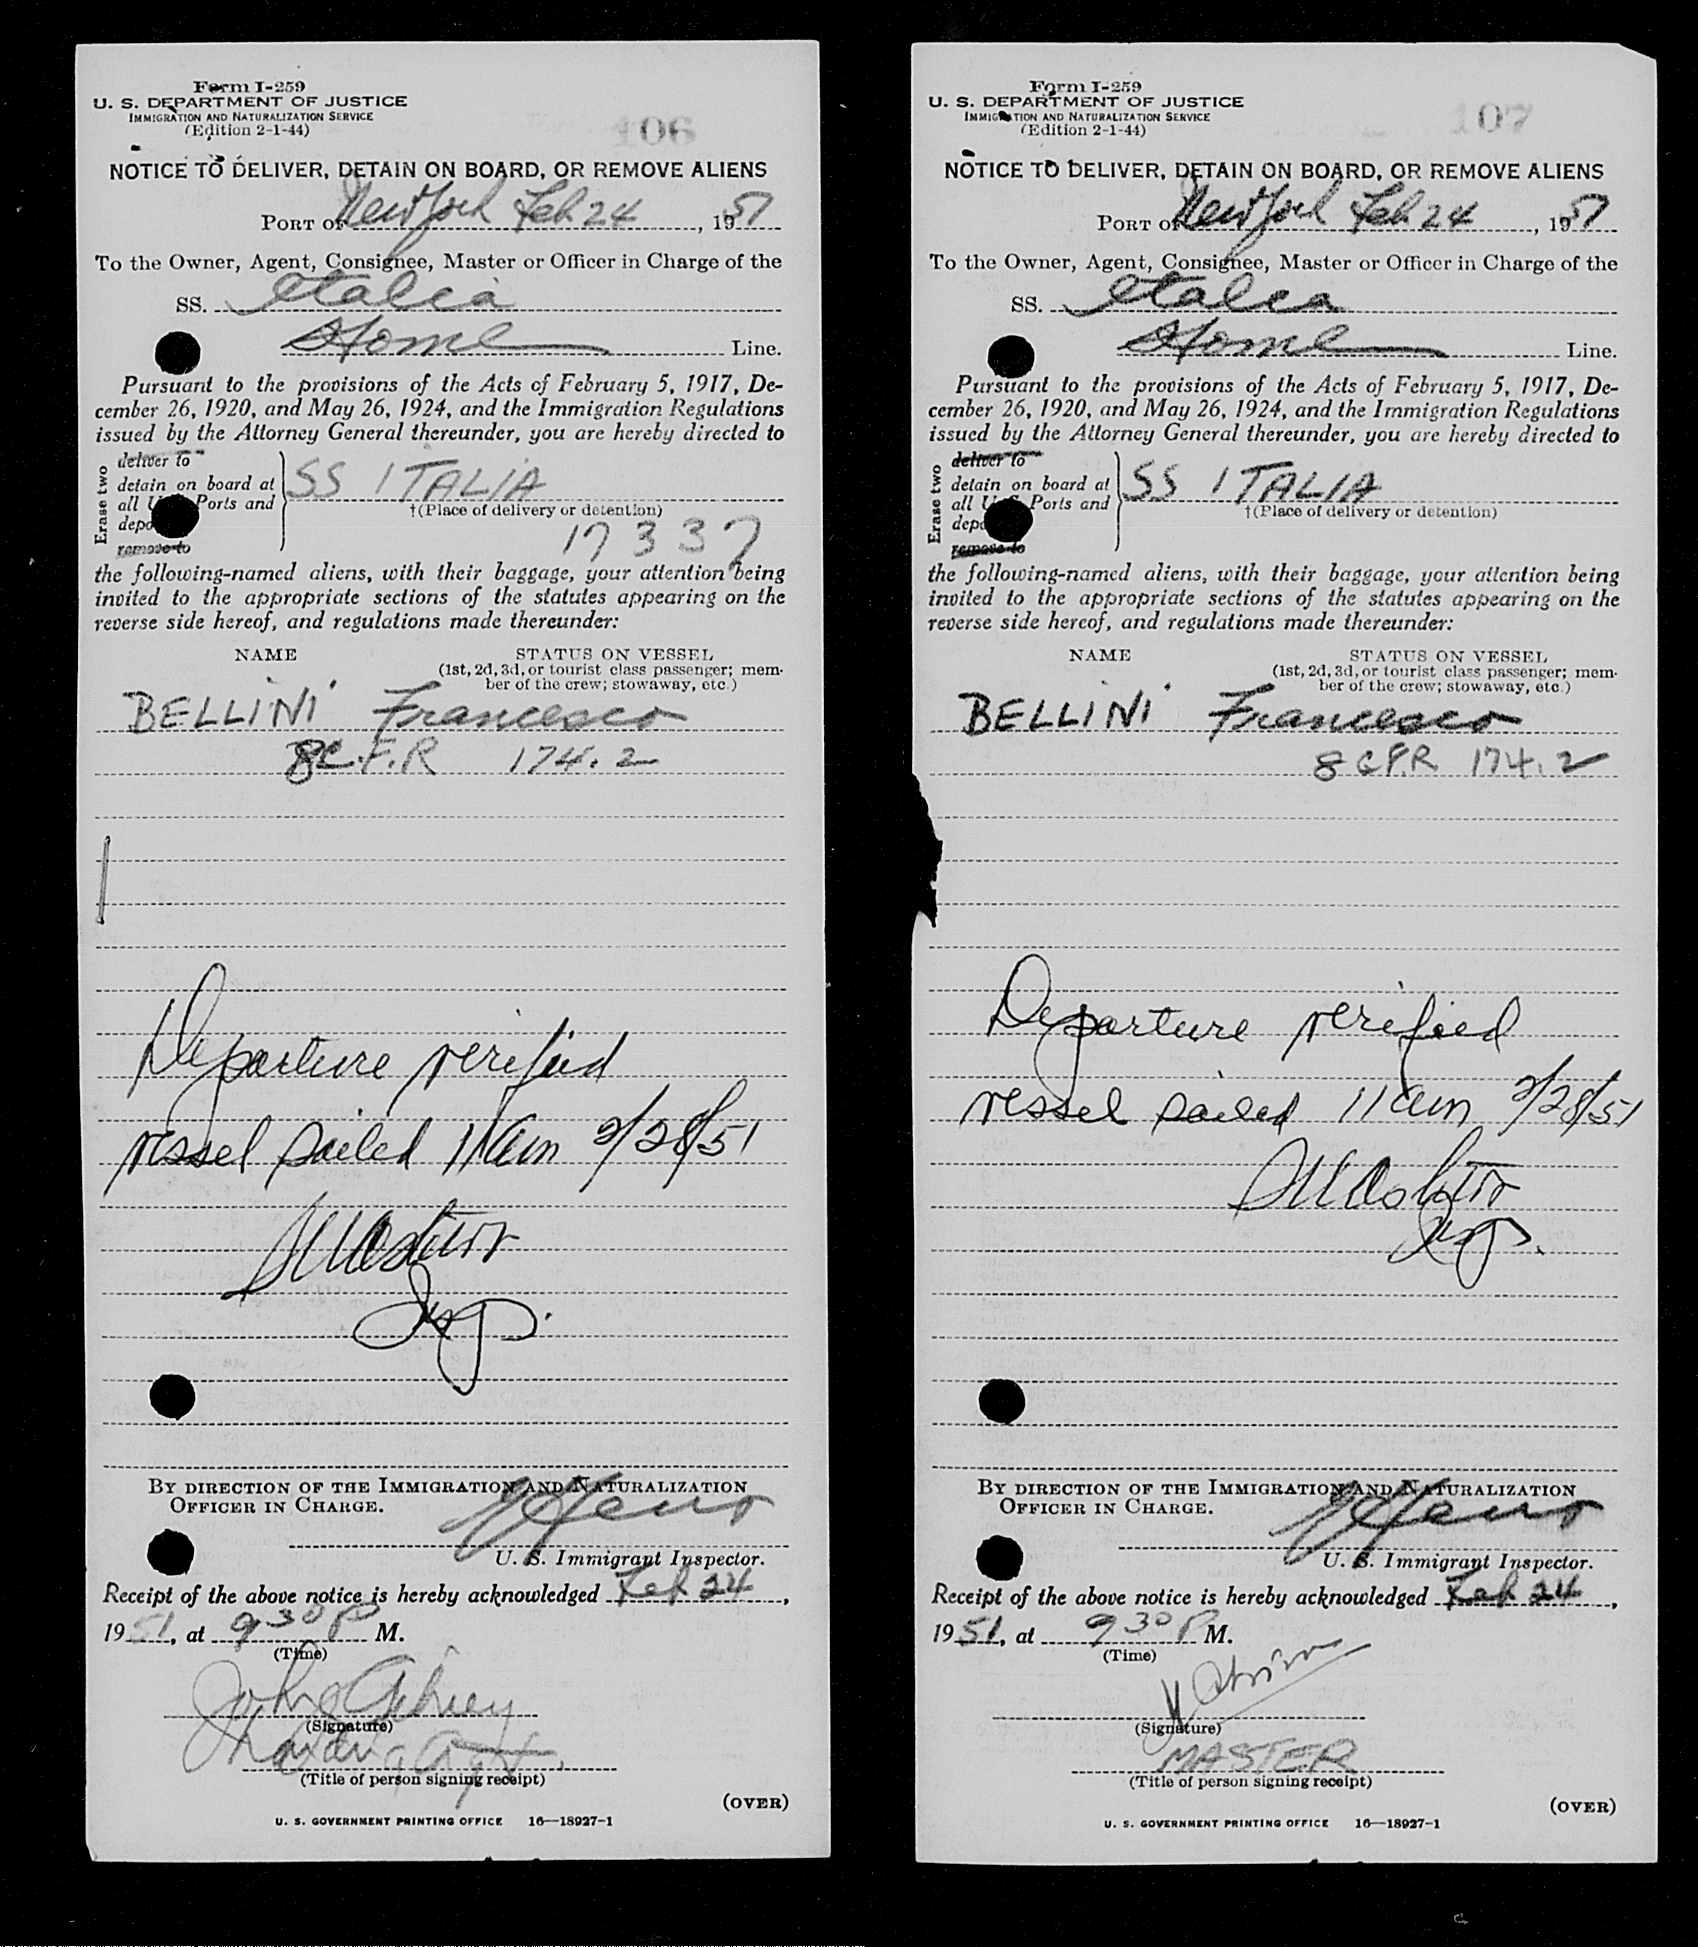 Form I-259
U. S. DEPARTMENT OF JUSTICE
IMMIGRATION AND NATURALIZATION SERVICE
(Edition 2-1-44)
106
NOTICE TO DELIVER, DETAIN ON BOARD, OR REMOVE ALIENS
PORT OF New York Feb 24, 1951
To the Owner, Agent, Consignee, Master or Officer in Charge of the
SS. Italia
Home Line.
Pursuant to the provisions of the Acts of February 5, 1917, De-
cember 26, 1920, and May 26, 1924, and the Immigration Regulations
issued by the Attorney General thereunder, you are hereby directed to
Erase two
deliver to
detain on board at
all U.S. Ports and
remove to
SS ITALIA
†(Place of delivery or detention)
17337
the following-named aliens, with their baggage, your attention being
invited to the appropriate sections of the statutes appearing on the
reverse side hereof, and regulations made thereunder:
NAME STATUS ON VESSEL
(1st, 2d, 3d, or tourist class passenger; mem-
ber of the crew; stowaway, etc.)
BELLINI Francesco
8 C.F.R 174.2
Departure verified
vessel sailed 11 am 2/28/51
Insp.
BY DIRECTION OF THE IMMIGRATION AND NATURALIZATION
OFFICER IN CHARGE.
U. S. Immigrant Inspector.
Receipt of the above notice is hereby acknowledged Feb 24,
1951, at 9 30 P M.
(Time)
John
(Signature)
(Title of person signing receipt)
(OVER)
U. S. GOVERNMENT PRINTING OFFICE 16—18927-1
Form I-259
U. S. DEPARTMENT OF JUSTICE
IMMIGRATION AND NATURALIZATION SERVICE
(Edition 2-1-44)
107
NOTICE TO DELIVER, DETAIN ON BOARD, OR REMOVE ALIENS
PORT OF New York Feb 24, 1951
To the Owner, Agent, Consignee, Master or Officer in Charge of the
SS. Italia
Home Line.
Pursuant to the provisions of the Acts of February 5, 1917, De-
cember 26, 1920, and May 26, 1924, and the Immigration Regulations
issued by the Attorney General thereunder, you are hereby directed to
Erase two
deliver to
detain on board at
all U.S. Ports and
remove to
SS ITALIA
†(Place of delivery or detention)
the following-named aliens, with their baggage, your attention being
invited to the appropriate sections of the statutes appearing on the
reverse side hereof, and regulations made thereunder:
NAME STATUS ON VESSEL
(1st, 2d, 3d, or tourist class passenger; mem-
ber of the crew; stowaway, etc.)
BELLINI Francesco
8 CF.R 174.2
Departure verified
vessel sailed 11 am 2/28/51
Insp.
BY DIRECTION OF THE IMMIGRATION AND NATURALIZATION
OFFICER IN CHARGE.
U. S. Immigrant Inspector.
Receipt of the above notice is hereby acknowledged Feb 24,
1951, at 9 30 P M.
(Time)
(Signature)
MASTER
(Title of person signing receipt)
(OVER)
U. S. GOVERNMENT PRINTING OFFICE 16—18927-1